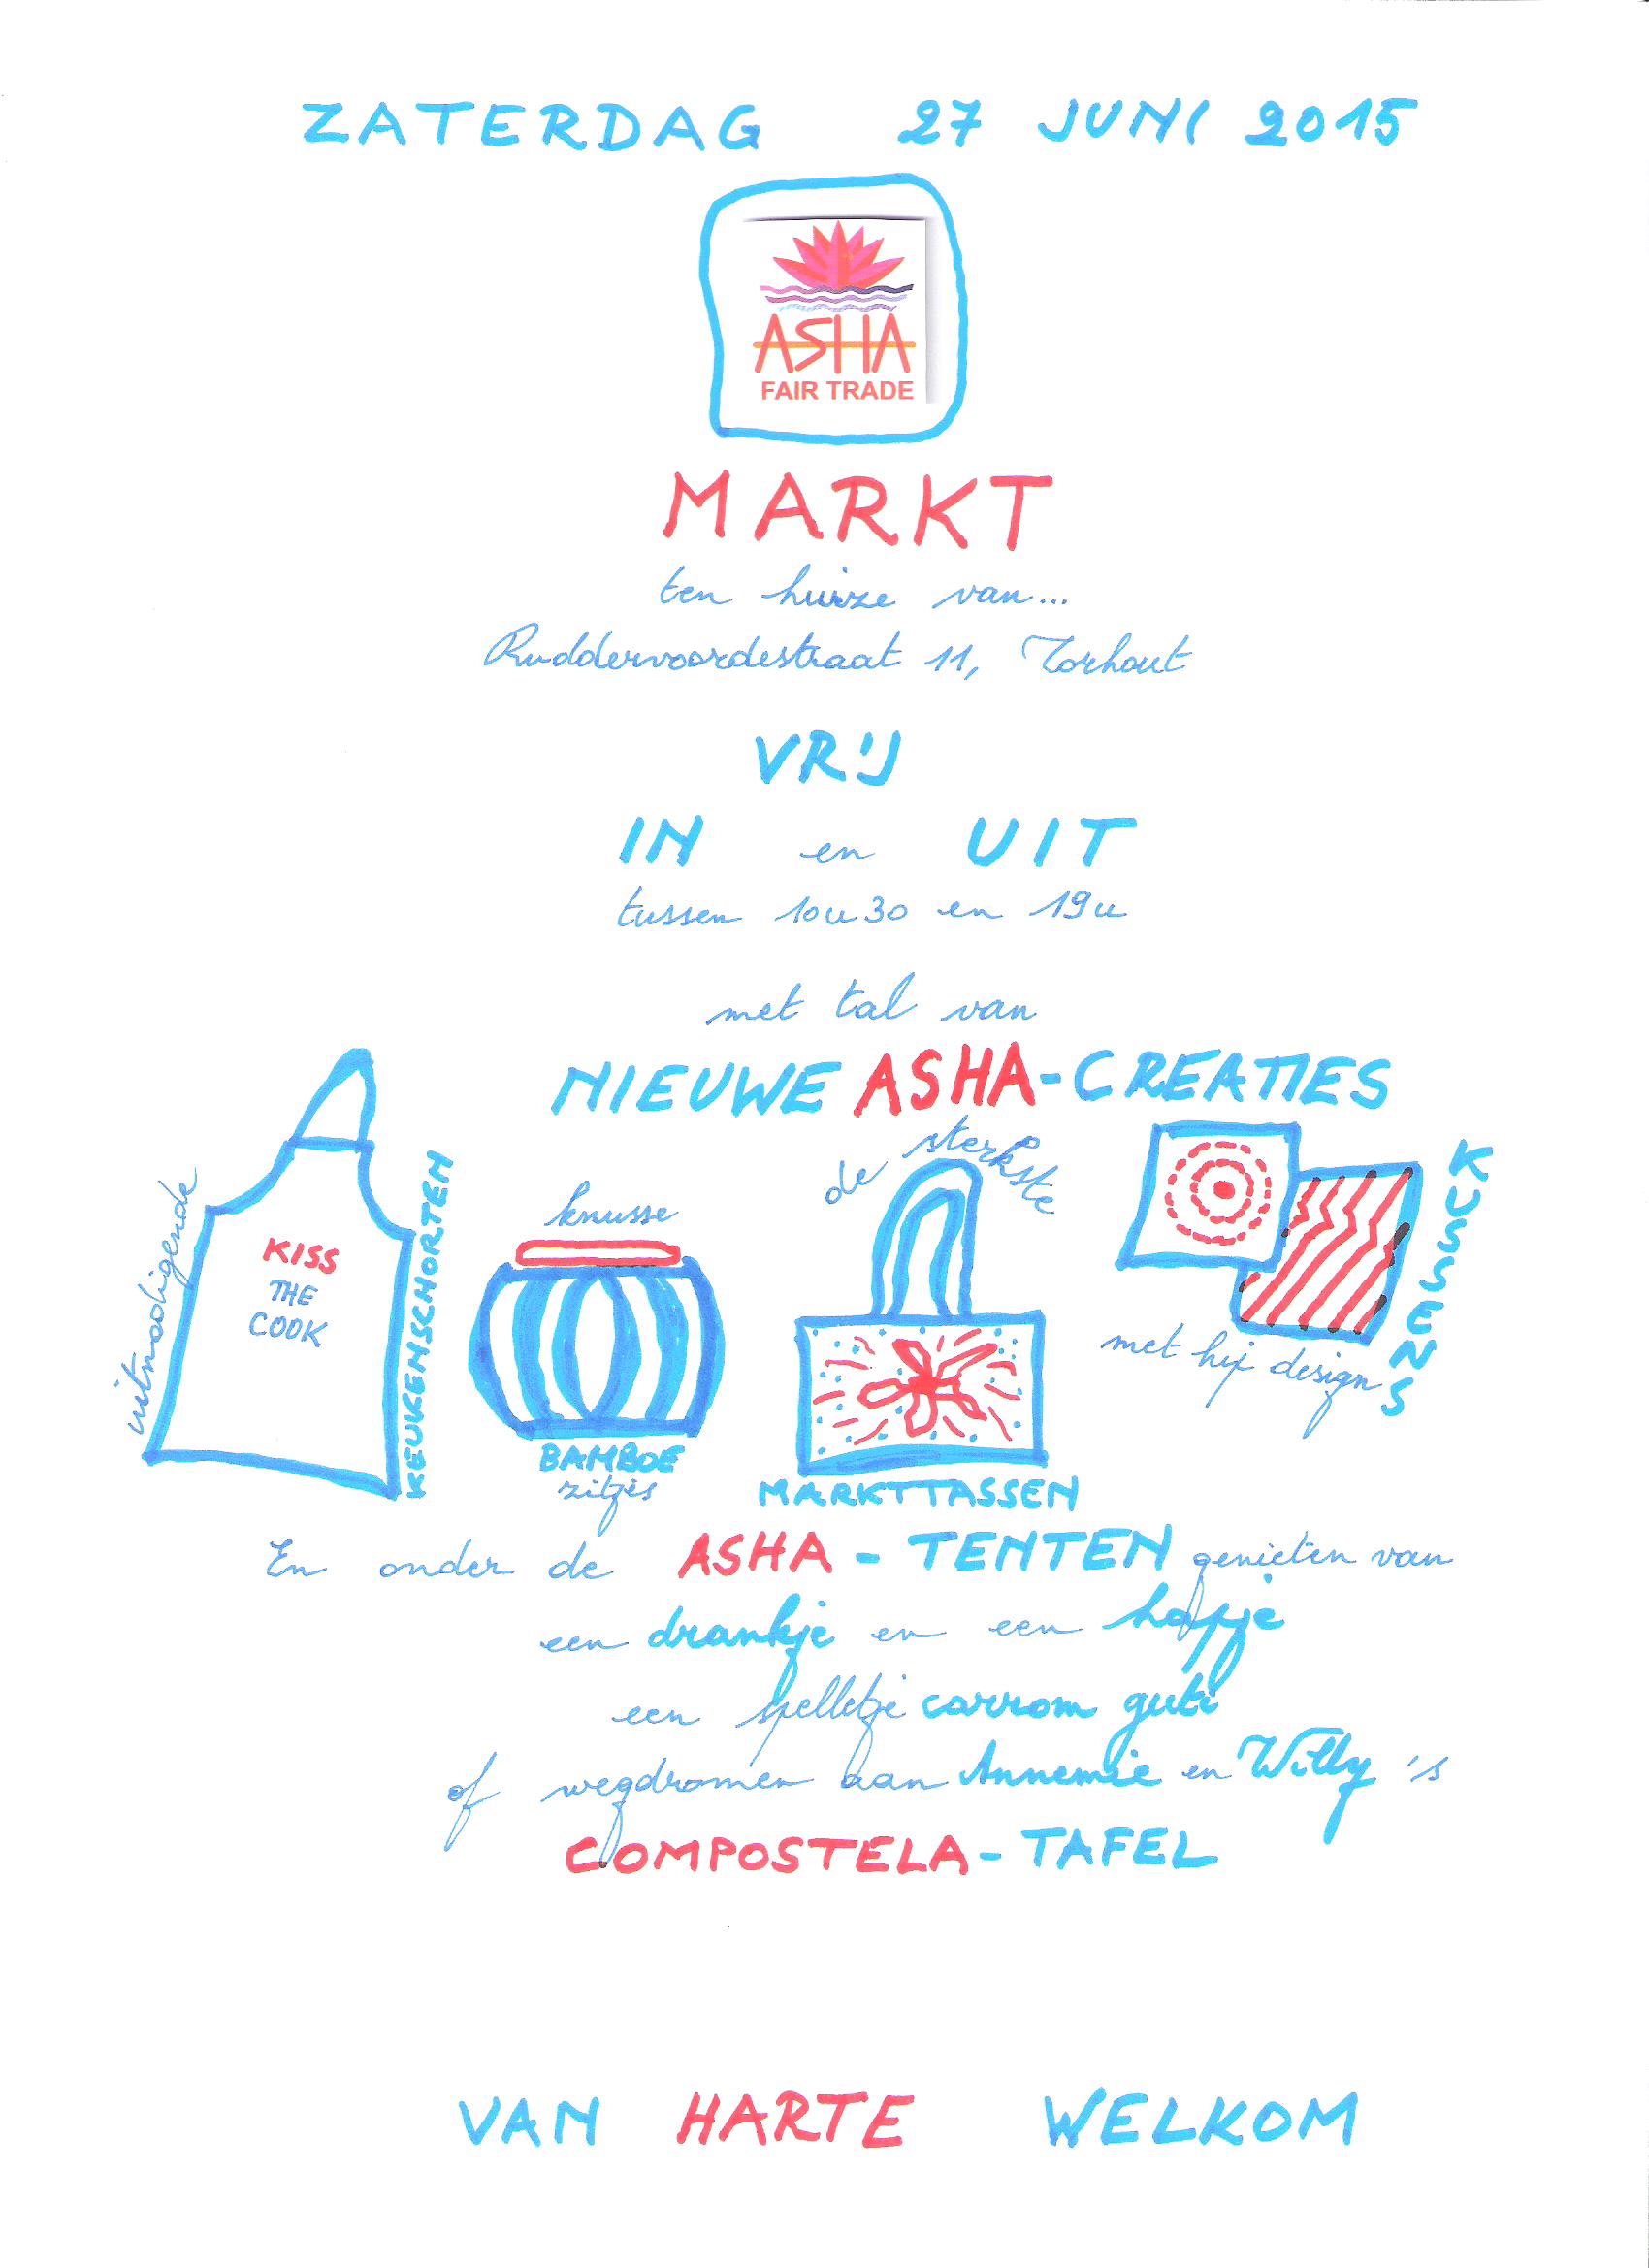 ZATERDAG 27 JUNI 2015
ASHA
FAIR TRADE
MARKT
ten huize van...
Ruddervoordestraat 11, Torhout
VRIJ
IN en UIT
tussen 10u30 en 19u
met tal van
NIEUWE ASHA-CREATIES
uitnodigende
KISS
THE
COOK
KEUKENSCHORTEN
knusse
BAMBOE
zitjes
de sterkste
MARKTTASSEN
KUSSENS
met hip design
En onder de ASHA - TENTEN genieten van
een drankje en een hapje
een spelletje carrom guti
of wegdromen aan Annemie en Willy's
COMPOSTELA - TAFEL
VAN HARTE WELKOM